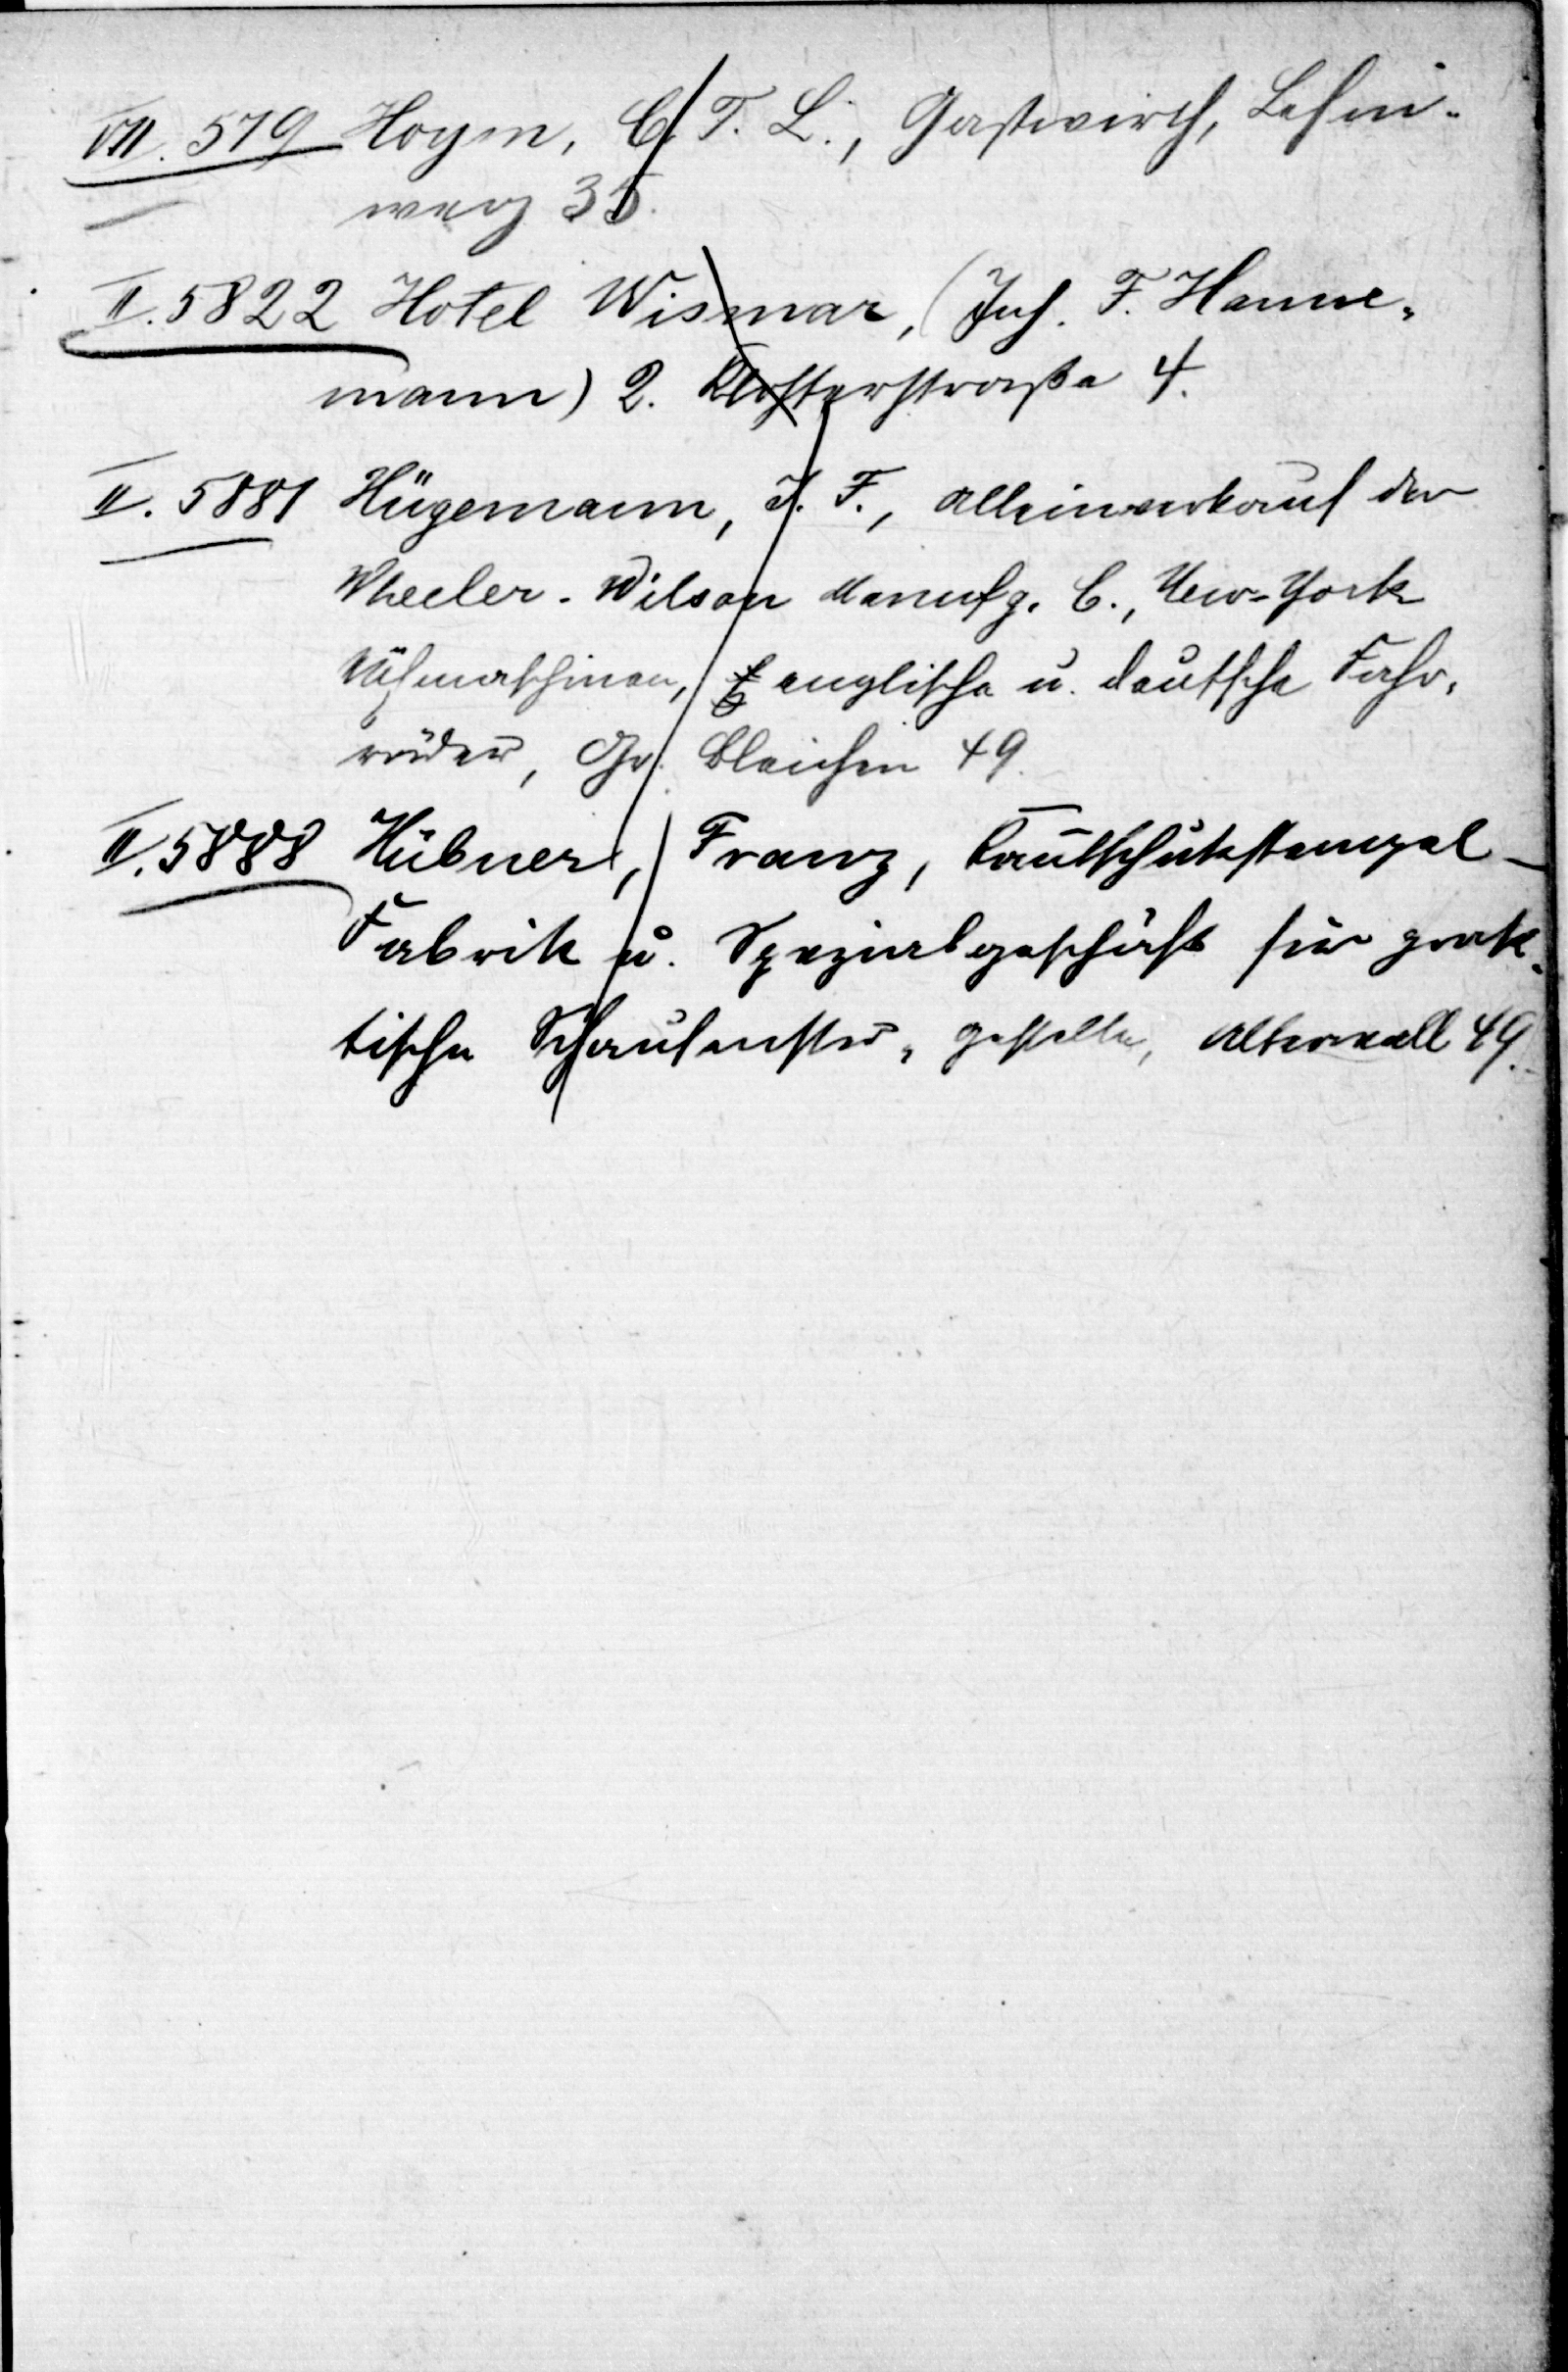 VII. 579 Hoym, C. T. L., Gastwirth, Lehm-
weg 35.
II. 5822 Hotel Wismar, (Inh. F. Hanne-
mann) 2. Klosterstraße 4.
II. 5881 Hügemann, J. F., Alleinverkauf der
Wheeler-Wilson Manufg. C., New-York
Nähmaschinen, englische u. deutsche Fahr-
räder, Gr. Bleichen 49.
II. 5888 Hübner, Franz, Kautschukstempel-
Fabrik u. Spezialgeschäft für prak-
tische Schaufenster-gestelle, Alterwall 49.